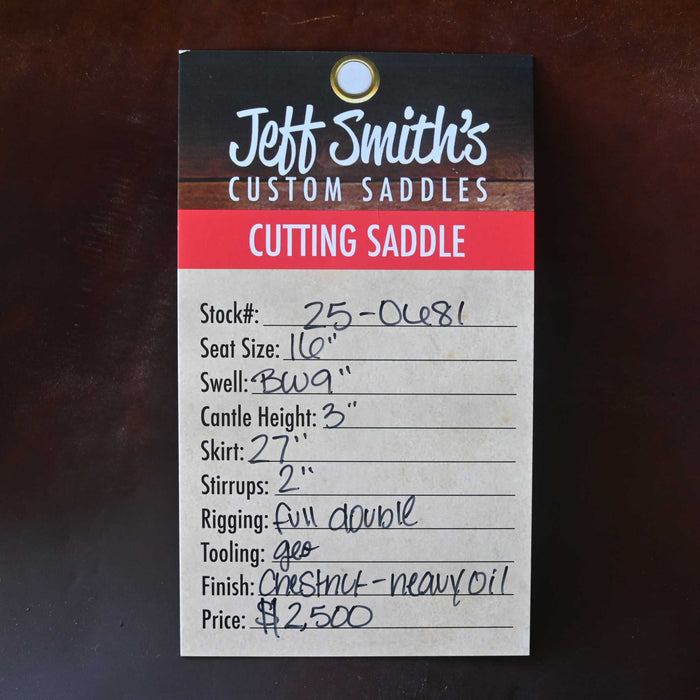 Jeff Smith's
CUSTOM SADDLES
CUTTING SADDLE
Stock#: 25-0681
Seat Size: 16"
Swell: BW9"
Cantle Height: 3"
Skirt: 27"
Stirrups: 2"
Rigging: full double
Tooling: geo
Finish: Chestnut-heavy oil
Price: $2,500